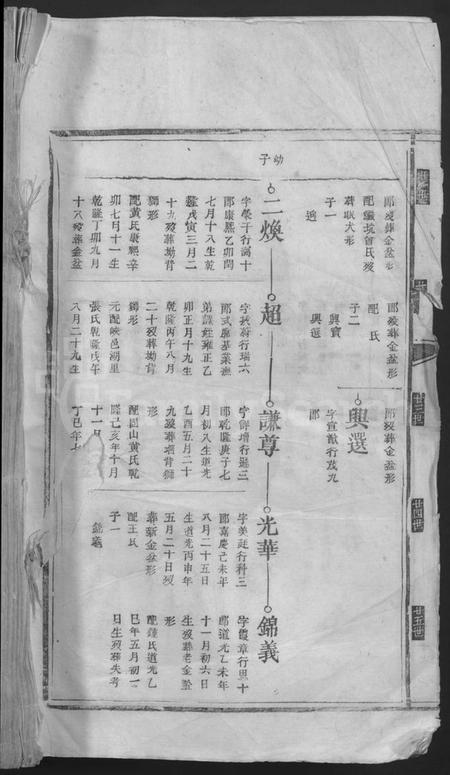 廿一世
廿二世
廿三世
廿四世
廿五世
郎歿葬金盆形
配鐵坑曾氏歿
葬臥犬形
子一
郎歿葬金盆形
配 氏
子二
興寶
興選
郎歿葬金盆形
興選
字宣猷行茂九
郎
幼子
二煥
字榮千行萬十
郎康熙乙卯閏
七月十八生乾
隆戊寅三月二
十九歿葬坳背
獅形
配黃氏康熙辛
卯七月十一生
乾隆丁卯九月
十八歿葬金盆
超
字秋蔚行瑞六
郎武庠基業無
弟讓雍正乙
卯正月十九生
乾隆丙午八月
二十歿葬坳背
獅形
元配峽邑湖里
張氏乾隆戊午
八月二十九生
謙尊
字錦增行縣三
郎乾隆庚子七
月初八生道光
乙酉五月二十
九歿葬坳背獅
形
配園山黃氏乾
隆己亥年十月
十一日
丁巳年七
光華
字美廷行科三
郎嘉慶己未年
八月二十五日
生道光丙申年
五月二十日歿
葬新金盆形
配王氏
子一
錦義
錦義
字霞章行思十
郎道光乙未年
十一月初六日
生歿葬老金盆
形
配鍾氏道光乙
巳年五月初一
日生歿葬失考